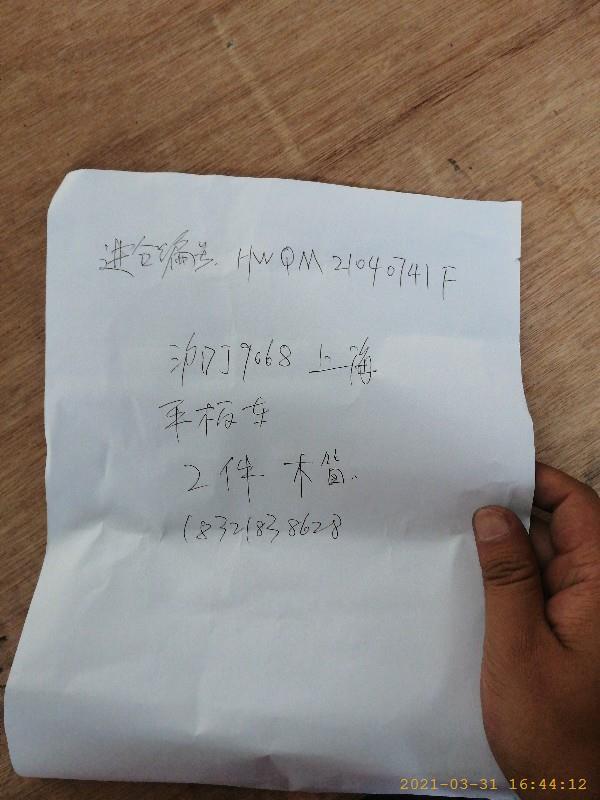 进仓编号 HWQM21040741F
沪DJ9668 上海
平板车
2件 木箱
18321838628
2021-03-31 16:44:12